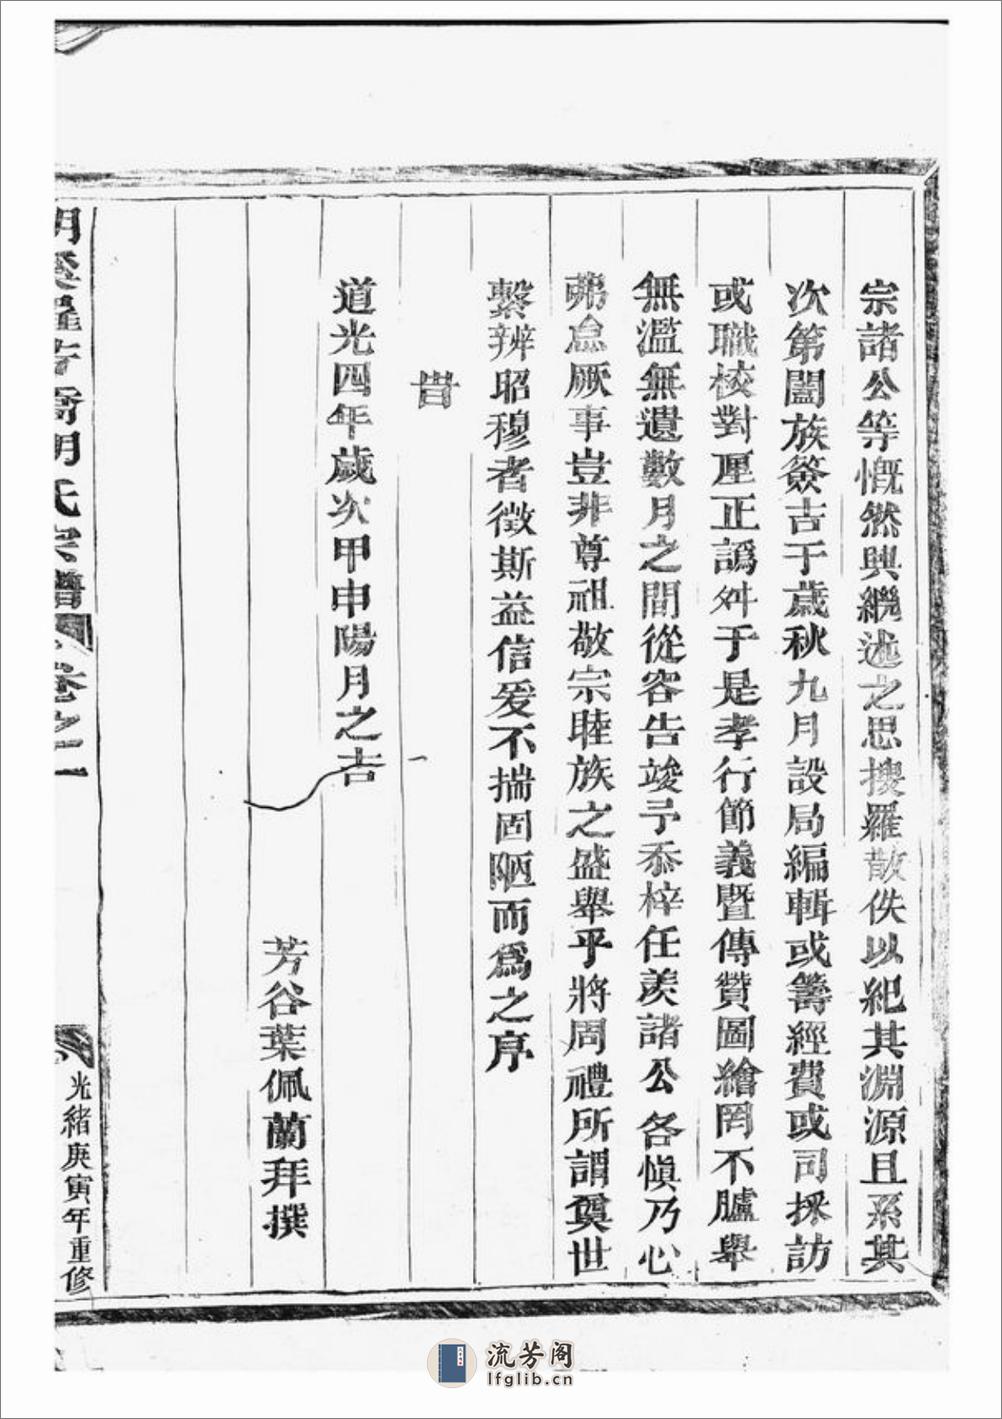 宗諸公等慨然興繼述之思搜羅散佚以紀其淵源且系其
次第闔族簽吉于歲秋九月設局編輯或籌經費或司採訪
或職校對厘正譌舛于是孝行節義暨傳贊圖繪罔不臚舉
無濫無遺數月之間從容告竣予忝梓任羨諸公各慎乃心
弗怠厥事豈非尊祖敬宗睦族之盛舉乎將周禮所謂奠世
繫辨昭穆者徵斯益信爰不揣固陋而為之序
旹
道光四年歲次甲申陽月之吉
芳谷葉佩蘭拜撰
喬胡氏宗譜 卷之一 光緒庚寅年重修
流芳阁
lfglib.cn